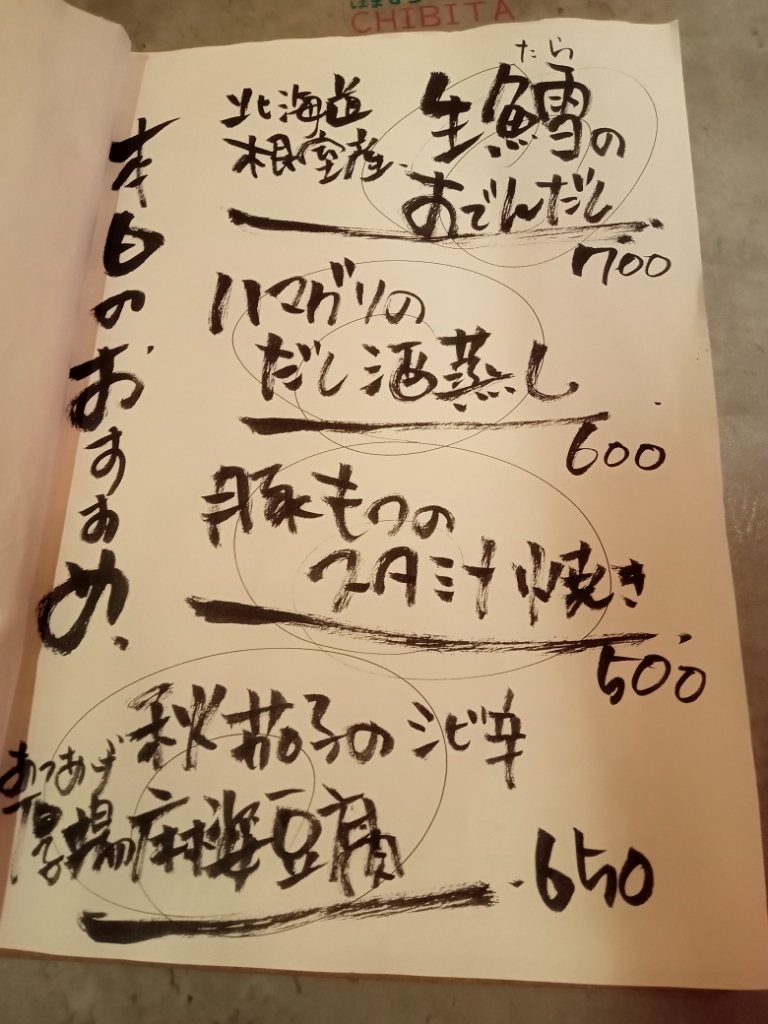 CHIBITA
本日のおすすめ、
北海道
根室産、
たら
生鱈の
おでんだし
700
ハマグリの
だし酒蒸し
600
豚もつの
スタミナ焼き
500
秋茄子のシビ辛
あつあげ
厚揚麻婆豆腐
650